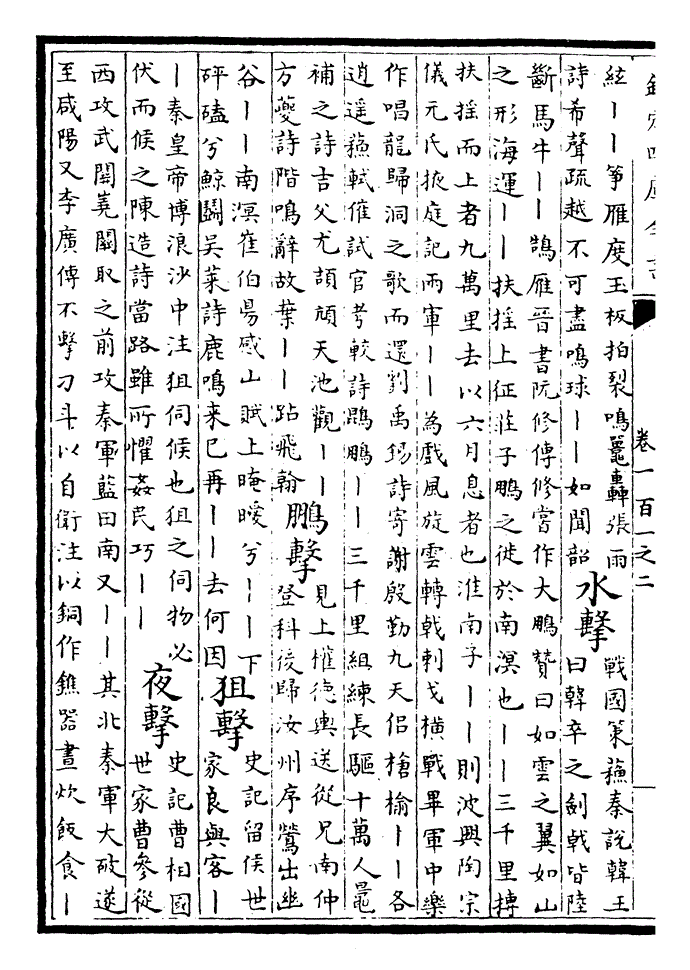 欽定四庫全書
卷一百一之二
絃丨丨箏雁度玉板拍裂鳴鼉轟張雨
詩希聲疏越不可盡鳴球丨丨如聞韶
水擊
戰國策蘇秦說韓王
曰韓卒之劍戟皆陸
斷馬牛丨丨鵠雁晉書阮修傳修嘗作大鵬贊曰如雲之翼如山
之形海運丨丨扶揺上征莊子鵬之徙於南溟也丨丨三千里摶
扶揺而上者九萬里去以六月息者也淮南子丨丨則波興陶宗
儀元氏掖庭記兩軍丨丨為戲風旋雲轉戟刺戈橫戰畢軍中樂
作唱龍歸洞之歌而還劉禹錫詩寄謝殷勤九天侶搶榆丨丨各
逍遥蘇軾催試官考較詩鵾鵬丨丨三千里組練長驅十萬人鼂
補之詩吉父尤頡頏天池觀丨丨
方夔詩階鳴辭故葉丨丨跕飛翰
鵬擊
見上權德輿送從兄南仲
登科後歸汝州序鶯出幽
谷丨丨南溟崔伯昜感山賦上晻曖兮丨丨下
砰磕兮鯨鬭吳萊詩鹿鳴来已再丨丨去何因
狙擊
史記留侯世
家良與客丨
丨秦皇帝博浪沙中注狙伺候也狙之伺物必
伏而候之陳造詩當路雖所懼姦民巧丨丨
夜擊
史記曹相國
世家曹參從
西攻武關嶢關取之前攻秦軍藍田南又丨丨其北秦軍大破遂
至咸陽又李廣傳不擊刁斗以自衛注以銅作鐎器晝炊飯食丨